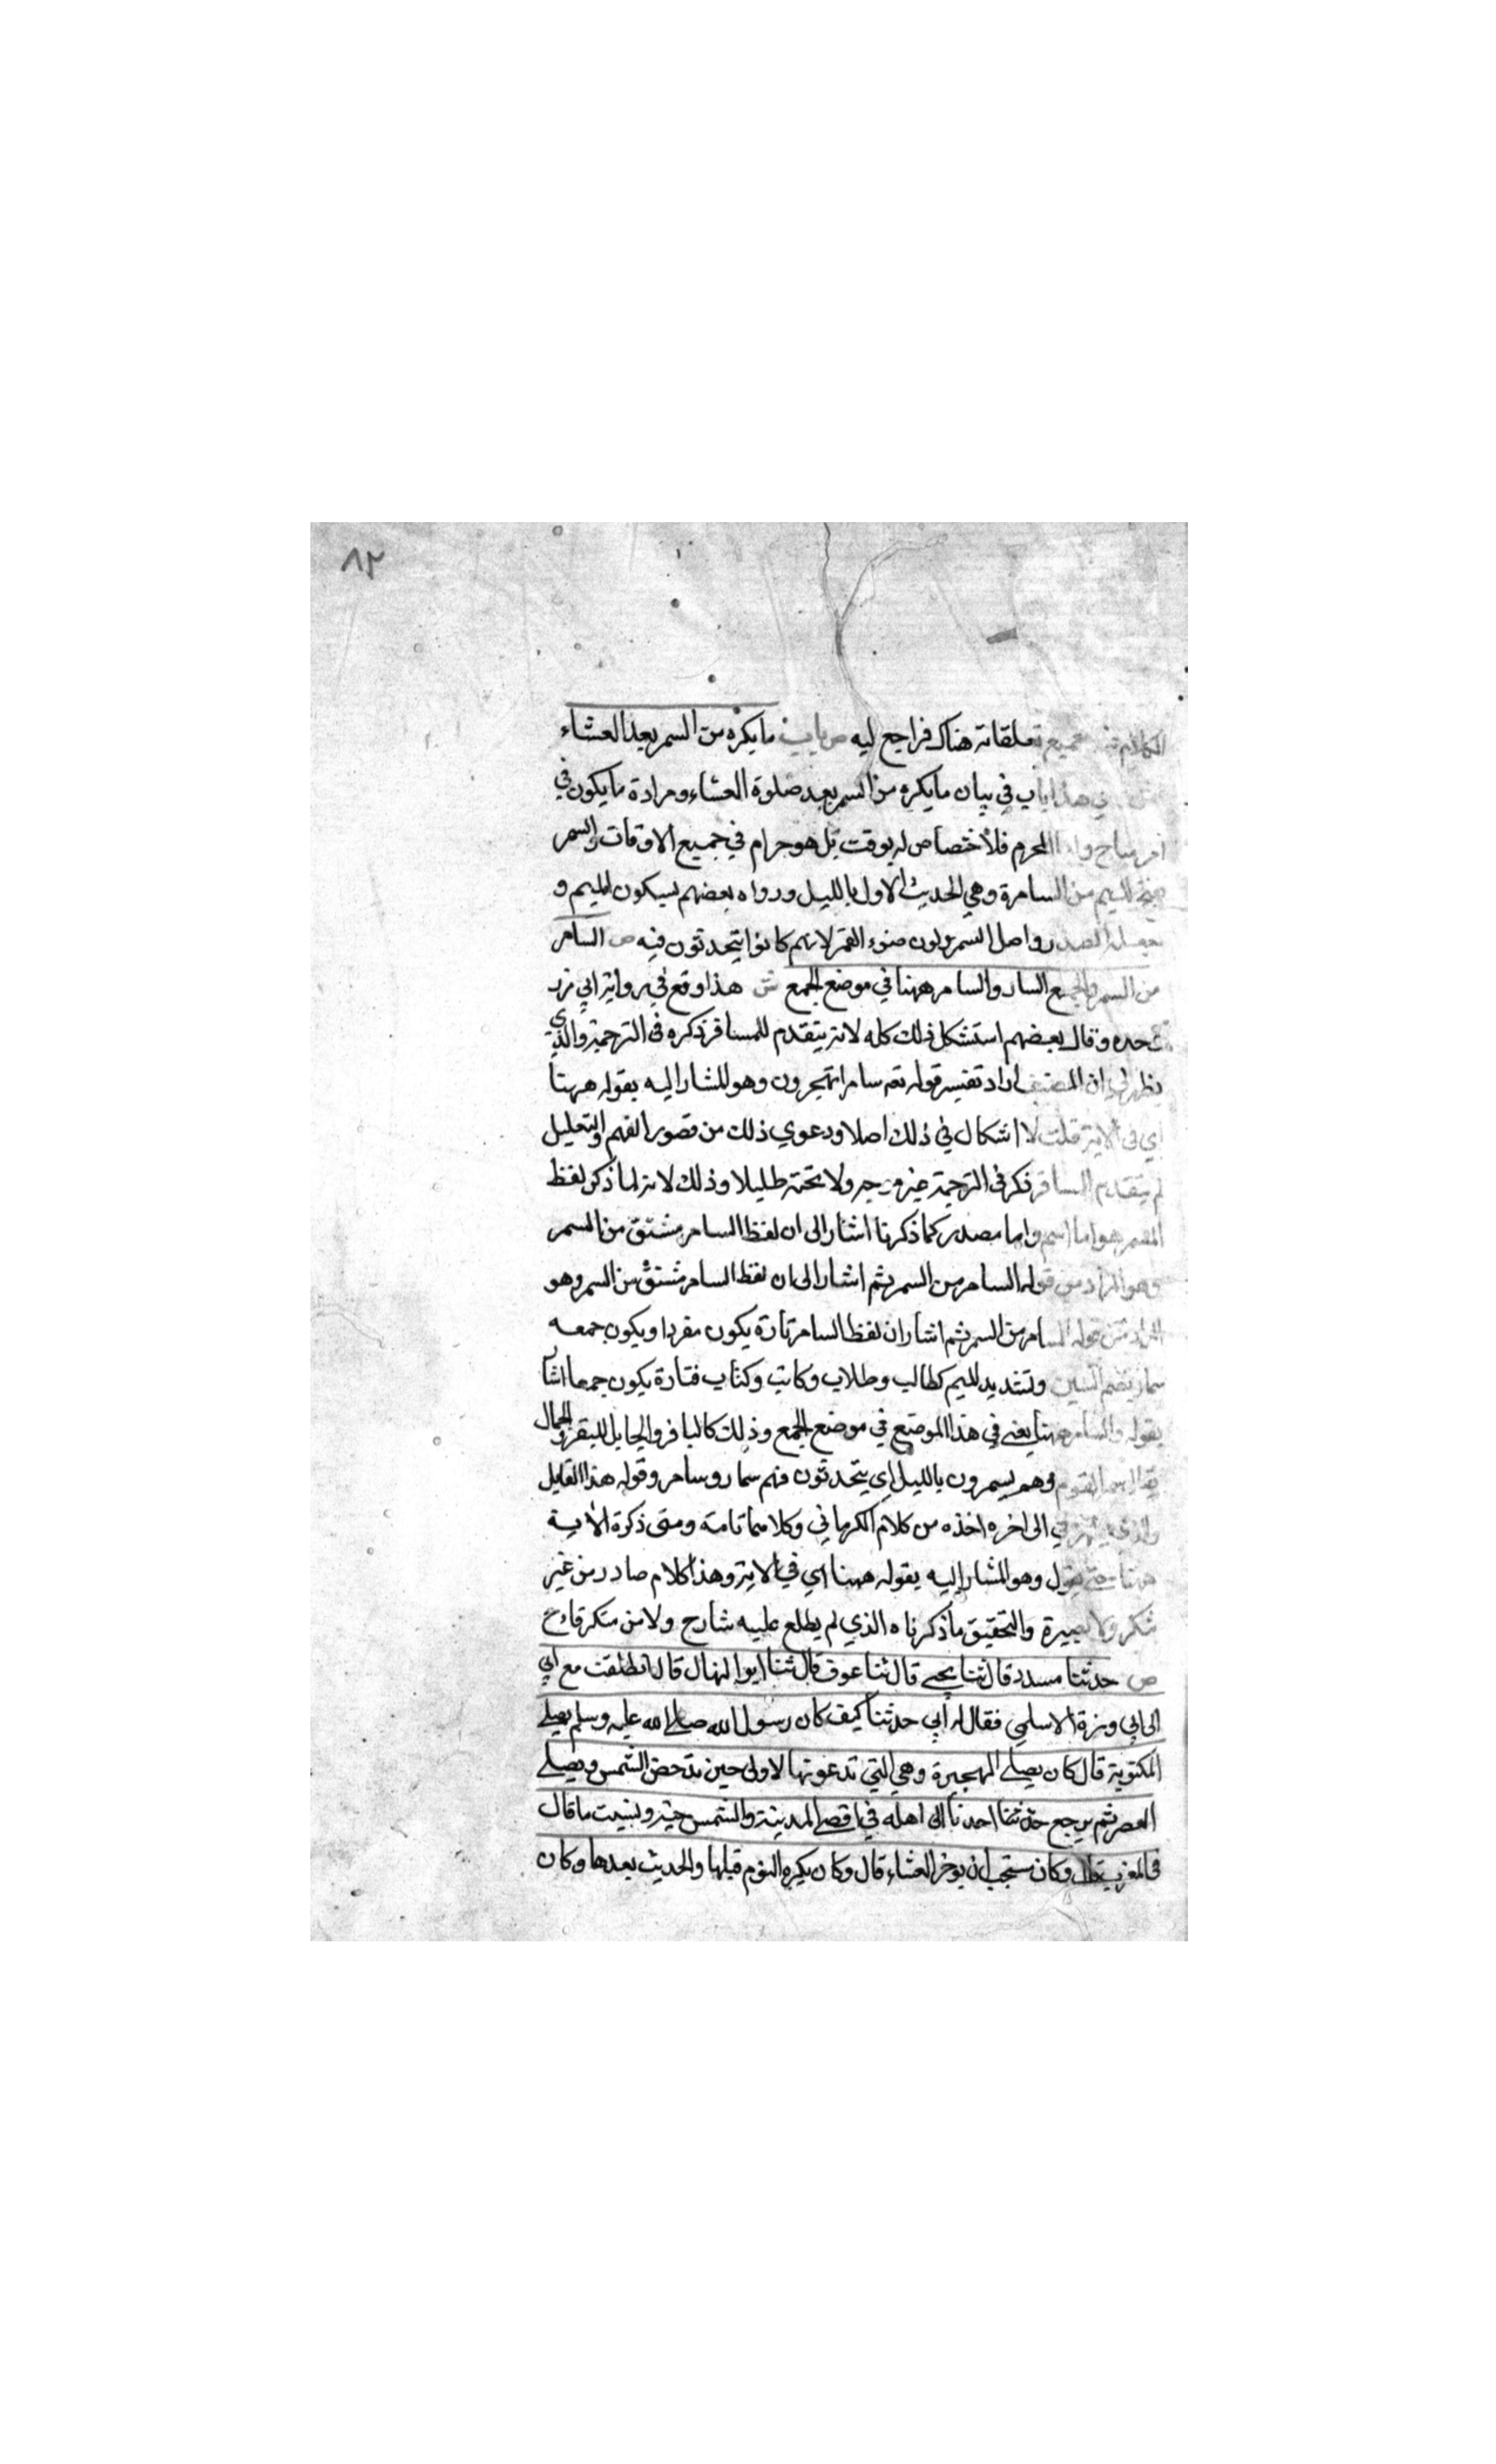 ٨٢
الكلام في جميع تعلقاته هناك فراجع ليه ص باب ما يكره من السمر بعد العشاء
ش اي هذا باب في بيان ما يكره من السمر بعد صلوة العشاء ومراده ما يكون في
امر مباح واما المحرم فلا أختصاص له بوقت بل هو حرام في جميع الاوقات والسمر
بفتح الميم من السامرة وهي الحديث الاول بالليل ورواه بعضهم بسكون الميم و
المصدر واصل السمر لون ضوء القمر لانهم كانوا يتحدثون فيه ص السامر
من السمر والجميع السار والسامر ههنا في موضع الجمع ش هذا وقع في رواية ابي ذر
وحده وقال بعضهم استشكل ذلك كله لانه يتقدم للمسافر ذكره في الترجمة والذي
يظهر لي ان المصنف اراد تفسير قوله تعم سامرا تهجرون وهو المشار اليه بقوله ههنا
اي في الاية قلت لا اشكال في ذلك اصلا ودعوي ذلك من قصور الفهم والتعليل
لم يتقدم المسافر ذكر في الترجمة ولا تحته طليلا وذلك لانه لما ذكر لفظ
السمر هو اما اسم واما مصدر كما ذكرنا اشار الى ان لفظ السامر مشتق من السمر
وهو المراد من قوله السامر من السمر ثم اشار الى ان لفظ السامر مشتق من السمر وهو
المراد من قوله السامر من السمر ثم اشار ان لفظ السامر تارة يكون مفردا ويكون جمعه
سمار بضم السين وتشديد الميم كطالب وطلاب وكاتب وكتاب فتارة يكون جمعا اشار
بقوله والسامر ههنا يعني في هذا الموضع في موضع الجمع وذلك كالباقر والجامل للبقر والجمال
يقال سمر القوم وهم يسمرون بالليل اي يتحدثون فهم سمار وسامر وقوله هذا القايل
والذي يظهر لي الى اخره اخذه من كلام الكرماني وكلامها تامة ومتى ذكرة الاية
ههنا حتى يقول وهو المشار إليه بقوله ههنا اي في الاية وهذا كلام صادر من غير
تفكر ولا بصيرة والتحقيق ما ذكرناه الذي لم يطلع عليه شارح ولا من متكر قادح
ص حدثنا مسدد قال ثنا يحيى قال ثنا عوف قال ثنا ابو المنهال قال انطلقت مع ابي
الى ابي وبرزة الاسلمي فقال له أبي حدثنا كيف كان رسول الله صلى الله عليه وسلم يصلي
المكتوبة قال كان يصلي الهجيرة وهي التي تدعونها الاولى حين تدحض الشمس ويصلي
العصر ثم يرجع احدنا الى اهله في اقصى المدينة والشمس حية ونسيت ما قال
في المغرب قال وكان يستحب ان يوخر العشاء قال وكان يكره النوم قبلها والحديث بعدها وكان